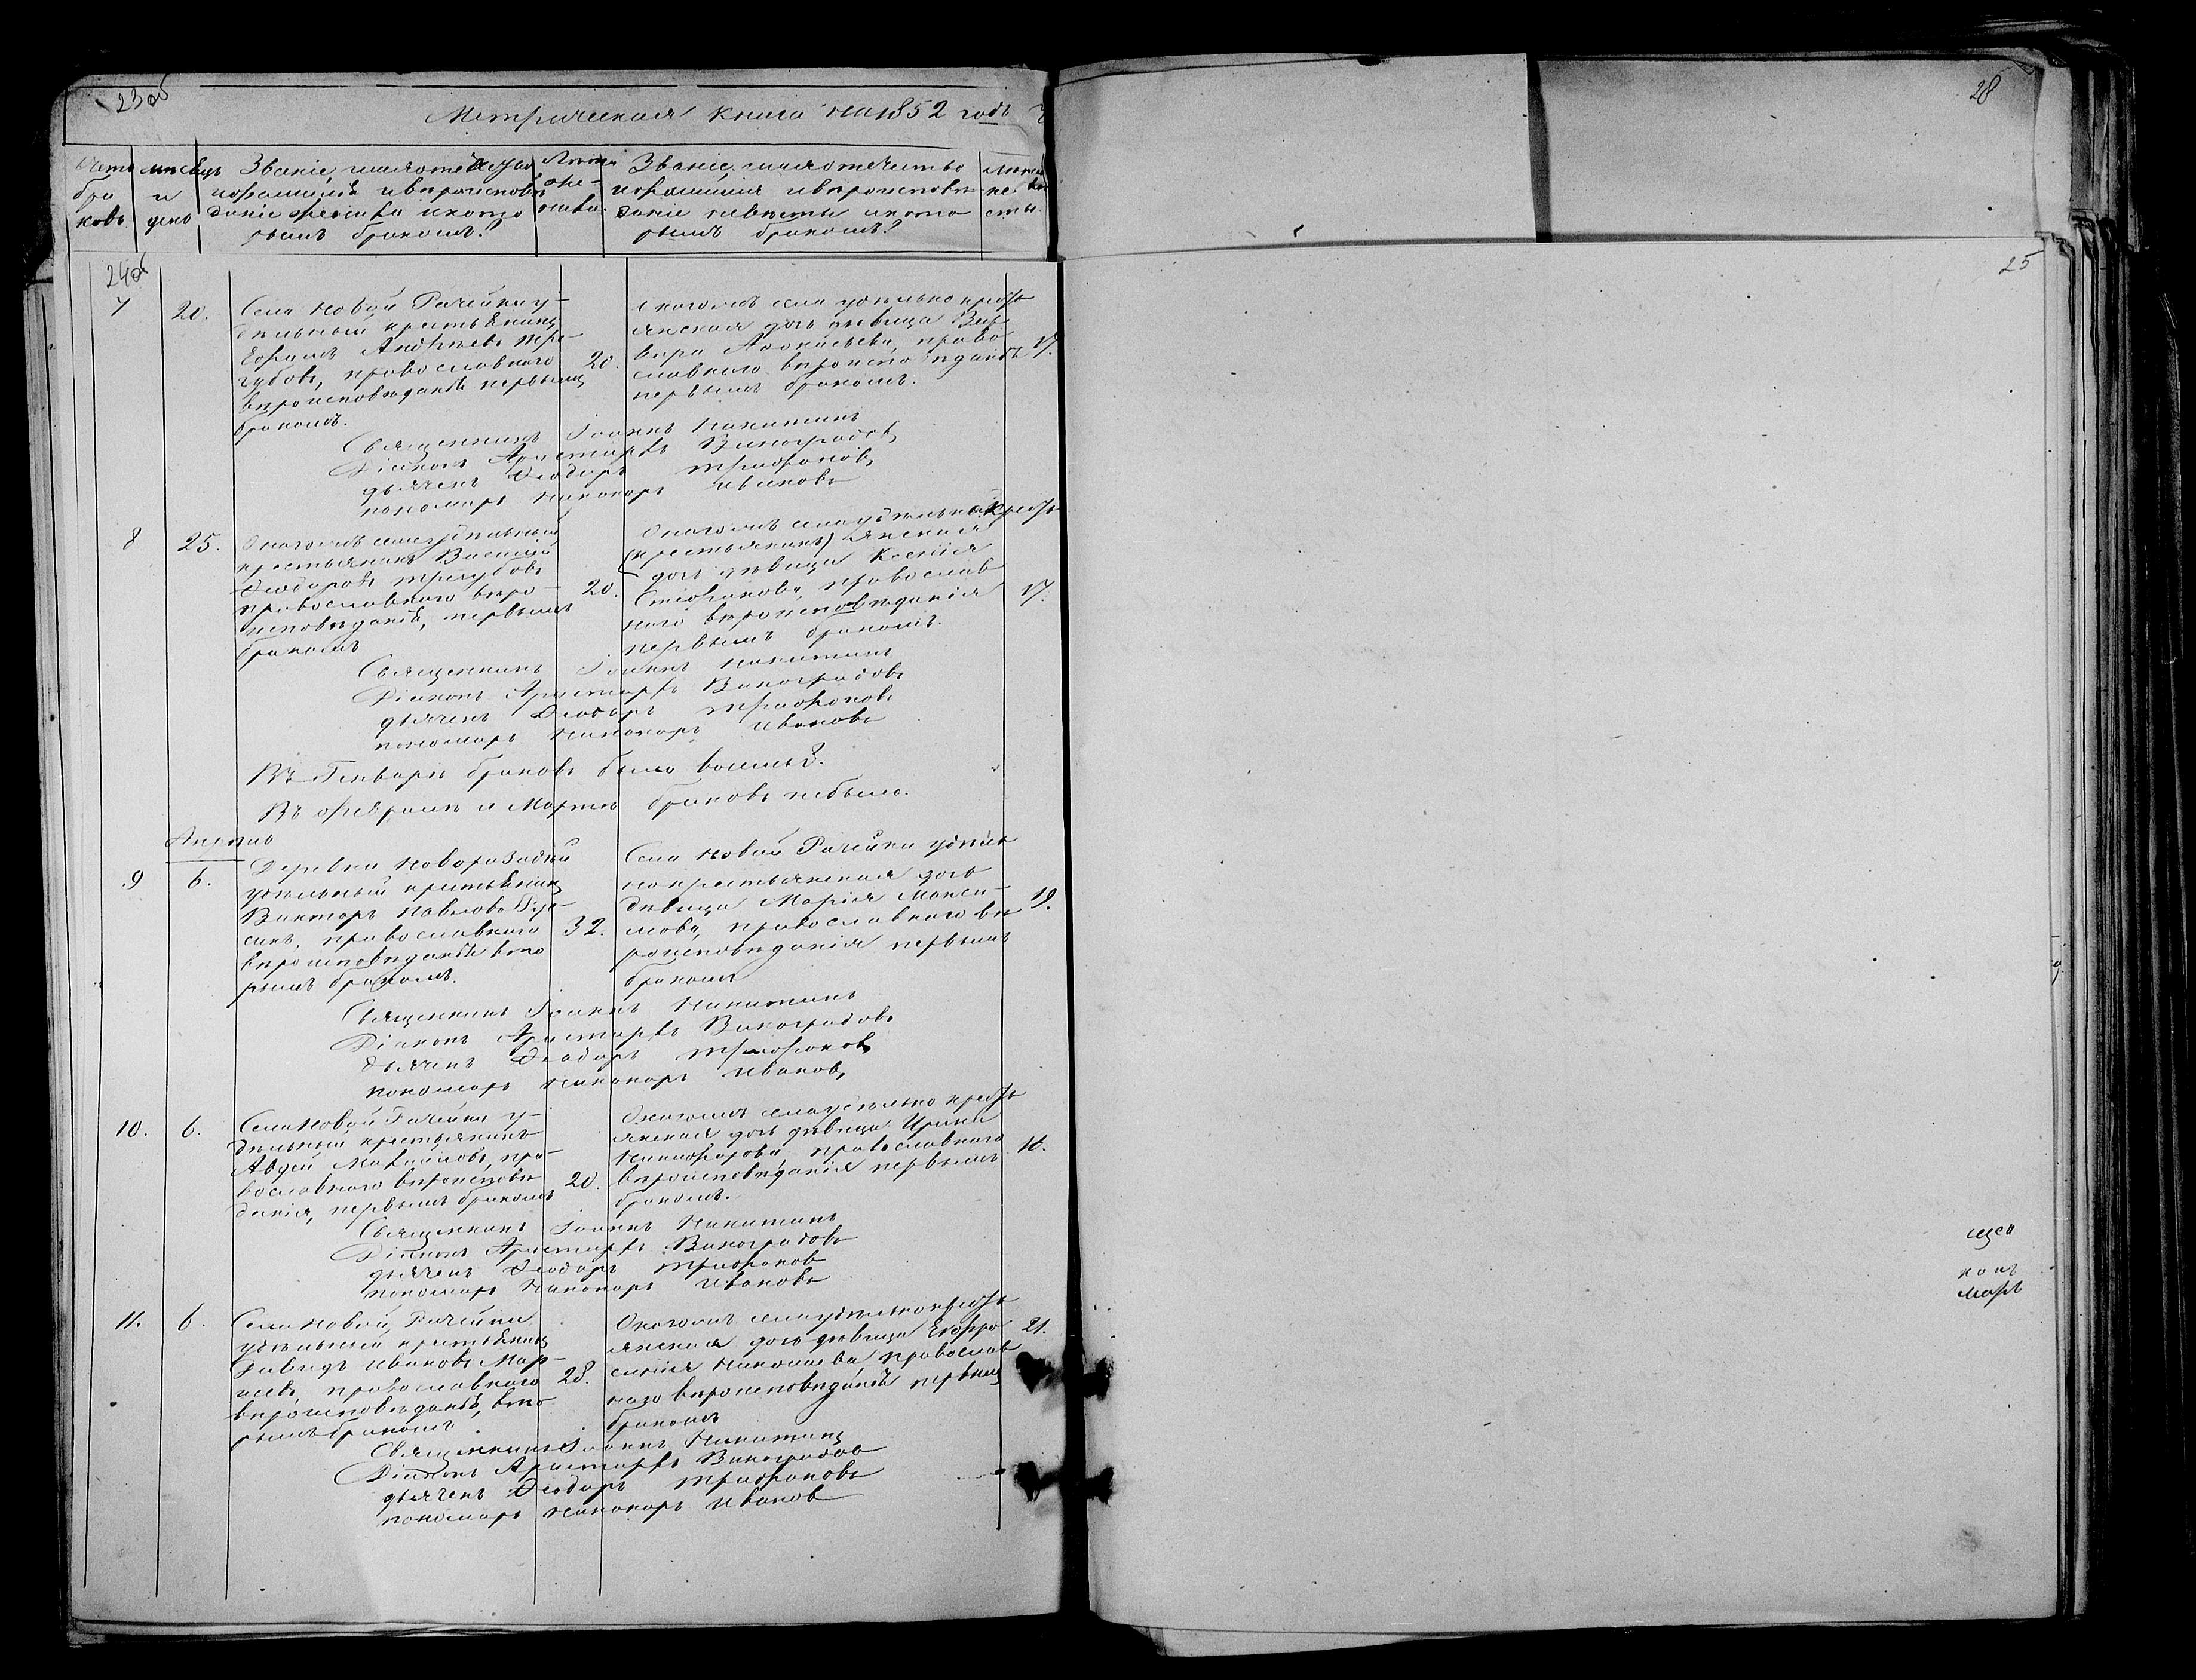 23об
Метрическая книга на 1852 годъ
28
Счетъ браковъ
мѣсяцъ и день
Званіе, имя отечество
и фамилія и вѣроисповѣ
даніе жениха и кото
рымъ бракомъ?
Лѣта жениха
Званіе, имя отечество
и фамилія и вѣроисповѣ
даніе невѣсты и кото
рымъ бракомъ?
Лѣта невѣсты
24об
25
7
20.
Села Новой Рачейки у-
дѣльный крестьянинъ
Ефримъ Андреевъ Тре-
губовъ, православнаго
вѣроисповѣданія первымъ
бракомъ.
20.
Окагожъ села удѣльно кресть
янская дочь дѣвица
православ
славнаго вѣроисповѣданія
первымъ бракомъ.
17.
Священникъ Іоаннъ Никитинъ
Діаконъ Аристархъ Виноградовъ
дьячекъ Ѳеодоръ Трифоновъ
пономарь Никаноръ Ивановъ
8
25.
Окагожъ села удѣльный
крестьянинъ Василій
Ѳеодоровъ Трегубовъ
православнаго вѣро-
исповѣданія, первымъ
бракомъ
20.
Окагожъ села удѣльно кресть
(крестьянинъ) янская
дочь дѣвица Ксенія
Стефанова, православ
наго вѣроисповѣданія
первымъ бракомъ.
17.
Священникъ Іоаннъ Никитинъ
Діаконъ Аристархъ Виноградовъ
дьячекъ Ѳеодоръ Трифоновъ
пономарь Никаноръ Ивановъ
Въ Генварѣ браковъ было восемь 8.
Въ Февралѣ и Мартѣ браковъ небыло.
Апрѣль
9
6.
Деревни
удѣльный крестьянинъ
Викторъ Павловъ
синъ, православнаго
вѣроисповѣданія вто
рымъ бракомъ.
32.
Села Новой Рачейки удѣль
но крестьянская дочь
дѣвица Марія Макси-
мова, православнаго вѣ
роисповѣданія первымъ
бракомъ
19.
Священникъ Іоаннъ Никитинъ
Діаконъ Аристархъ Виноградовъ
дьячекъ Ѳеодоръ Трифоновъ
пономарь Никаноръ Ивановъ
10.
6.
Села Новой Рачейки у-
дѣльный крестьянинъ
Авдей Михайловъ, пра-
вославнаго вѣроисповѣ
данія, первымъ бракомъ
20.
Окагожъ села удѣльно кресть
янская дочь дѣвица Ирина
Никифорова, православнаго
вѣроисповѣданія первымъ
бракомъ.
16.
Священникъ Іоаннъ Никитинъ
Діаконъ Аристархъ Виноградовъ
дьячекъ Ѳеодоръ Трифоновъ
пономарь Никаноръ Ивановъ
11.
6.
Села Новой Рачейки
удѣльный крестьянинъ
Давидъ Ивановъ
православнаго
вѣроисповѣданія, вто
рымъ бракомъ
28.
Окагожъ села удѣльно кресть
янская дочь дѣвица Евфро
синія Николаева православ
наго вѣроисповѣданія первымъ
бракомъ
21.
Священникъ Іоаннъ Никитинъ
Діаконъ Аристархъ Виноградовъ
дьячекъ Ѳеодоръ Трифоновъ
пономарь Никаноръ Ивановъ